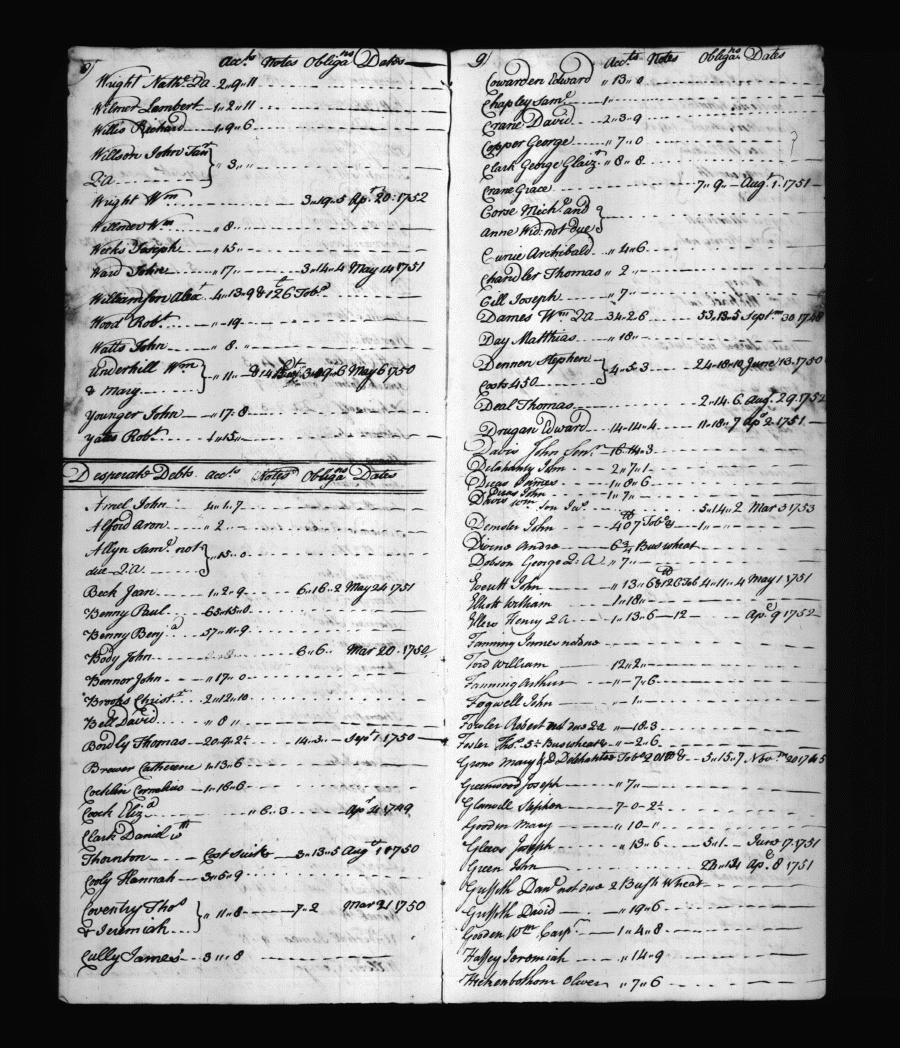 8) Acc.ts Notes Obliga.ns Dates
Wright Nath.l Qa 2,,9,,11
Wilmer Lambert 1,,2,,11
Willis Richard 1,,9,,6
Willson John Tan.r
Qa ,, 3,, ,,
Wright W.m 3,,19,,5 Ap.r 20: 1752
Willmer W.m ,, 8 ,,
Weeks Joseph ,, 15 ,,
Ward John ,, 17 ,, 3,,14,,4 May 14 1751
Williamson Alex.r 4,,13,,9 & 126 Tob.o
Wood Rob.t ,,-19-
Watts John ,, 8. ,,
Underhill W.m
& Mary ,, 11 ,, May 6 1750
Younger John ,, 17: 8
Yates Rob.t 1,,15,,
Desperate Debts Acc.ts Notes Obliga.ns Dates
Amel John 4,,1,,7
Alford Aron ,, 2 ,,
Allyn Sam.l not
due Q.a ,,15,,0
Beck Jean 1,,2,,9 6,,16,,2 May 24 1751
Benny Paul 65,,15,,0
Benny Benj.a 37,,11,,9
Body John 6,,6,, Mar 20: 1750
Bennor John ,,17,,0
Brooks Christ.r 2,,12,,10
Bell David ,, 8 ,,
Bordly Thomas 20,,9,,2½ 14,,3,, Sep.t 1 1750
Brewer Catherene 1,,13,,6
Cocklin Cornelius 1,,16,,6
Cook Eliz.a ,, 6,,3 Ap.r 4 1749
Clark Daniel w.th
Thornton Cost Suite 3,,13,,5 Aug.t 1 1750
Cooly Hannah 3,,6,,9
Coventry Tho.s
& Jeremiah ,, 11,,8 7,,2 Mar 21 1750
Cully James 3,, ,,8
9) Acc.ts Notes Obliga.ns Dates
Cowarden Edward ,, 13,,0
Chapley Sam.l 1,,
Crane David 2,,3,,9
Copper George ,, 7,,0
Clark George Glaiz.r ,, 8,,8
Crane Grace 7,,9,, Aug.t 1: 1751
Corse Mich.l and
Anne Wid: not due
Cunie Archibald ,, 4,,6
Chandler Thomas ,, 2 ,,
Cill Joseph ,, 7 ,,
Dames W.m Qa 34-2-6 53,,13,,5 Sept.m 30 1748
Day Matthias ,, 18 ,,
Dennen Stephen
Costs 450 4,,5,,3 24-18-10 June 13 1750
Deal Thomas 2,,14,,6 Aug. 29 1752
Drugan Edward 14-14-4 11,,18,,7 Ap.l 2 1751
Davis John Sen.r 16-14-3
Delahunty John 2,,7,,1
Ducas James 1,,8,,6
Ducas John 1,,7,,
Davis W.m Son Jn.o 5,,14,,2 Mar 3 1753
Demster John 407 Tob.o & 1,,
Divine Andrew 6¾ Bus wheat
Dobson George Q. A ,, 7 ,,
Everitt John ,, 13,,6 & 126 Tob 4,,11,,4 May 1 1751
Elliott William 1,,18,,
Ellers Henry Qa 1,,13,,6 -12 Ap.l 9 1752
Fanning James not due
Ford William 12,,2,,
Fanning Arthur ,,-7,,6
Fogwell John ,,-1,,
Fowler Robert not due Qa ,,-18,,3
Foster Tho.s 5½ Bus wheat ,,-2,,6
Grone Mary 5,,15,,7 Nov.m 20 1745
Greenwood Joseph ,, 7 ,,
Glanvill Stephen 7-0-2½
Gooden Mary ,, 10-,,
Gleaves Joseph ,, 13,,6 5,,1 June 7 1751
Green John Ap.l 8 1751
Griffith Dan.l not due 2 Bush Wheat
Griffith David ,, 19,,6
Gooden W.m Carp.r 1,,4,,8
Hassey Jeremiah ,, 14,,9
Hickenbothom Oliver ,, 7,,6